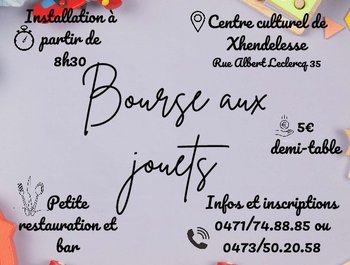 Installation à
partir de
8h30
Centre culturel de
Xhendelesse
Rue Albert Leclercq 35
Bourse aux
jouets
5€
demi-table
Petite
restauration et
bar
Infos et inscriptions
0471/74.88.85 ou
0473/50.20.58